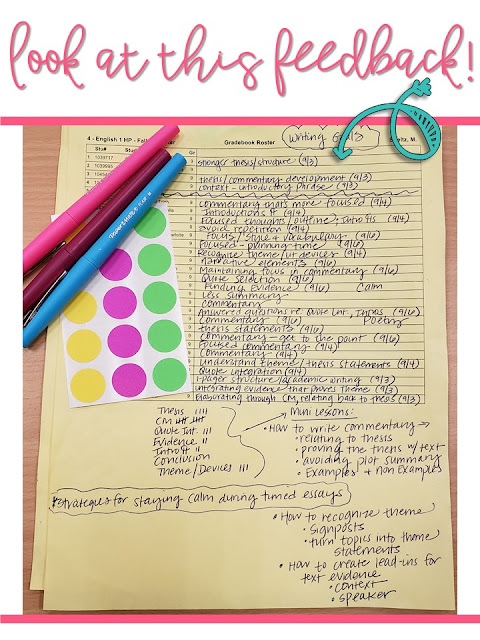 look at this feedback!
4 - English 1 HP - Fall
Gradebook Roster
Writing Goals
Stu#
Gr
1039717
9 stronger thesis/structure (9/3)
1039995
9 thesis/commentary development (9/3)
9 context - introductory phrase (9/3)
commentary that's more focused (9/4)
Introductions # (9/4)
Focused thoughts/outline; Intros (9/4)
avoid repetition (9/4)
Focus/style & vocabulary (9/6)
Focused - planning time (9/6)
Recognize theme/lit devices (9/4)
Narrative elements (9/6)
Maintaining focus in commentary (9/4)
Quote Selection (9/6)
Finding Evidence (9/6) Calm
Less Summary
Commentary
Answered questions re: Quote Int., Thesis (9/6)
Commentary (9/6) Poetry
thesis statements (9/6)
commentary - get to the point (9/6)
Focused commentary (9/4)
Commentary (9/4)
Understand theme/thesis statements (9/4)
Quote integration (9/4)
1-pager structure/academic writing (9/3)
integrating evidence that proves theme (9/3)
Elaborating through CM, relating back to thesis (9/3)
Thesis IIII
CM
Quote Int. III
Evidence II
Intro # II
Conclusion
Theme/Devices III
Mini Lessons:
• How to write commentary →
• relating to thesis
• proving the thesis w/ text
• avoiding plot summary
• Examples + non Examples
*Strategies for staying calm during timed essays
• How to recognize theme
• signposts
• turn topics into theme statements
• How to create lead-ins for text evidence
• context
• speaker